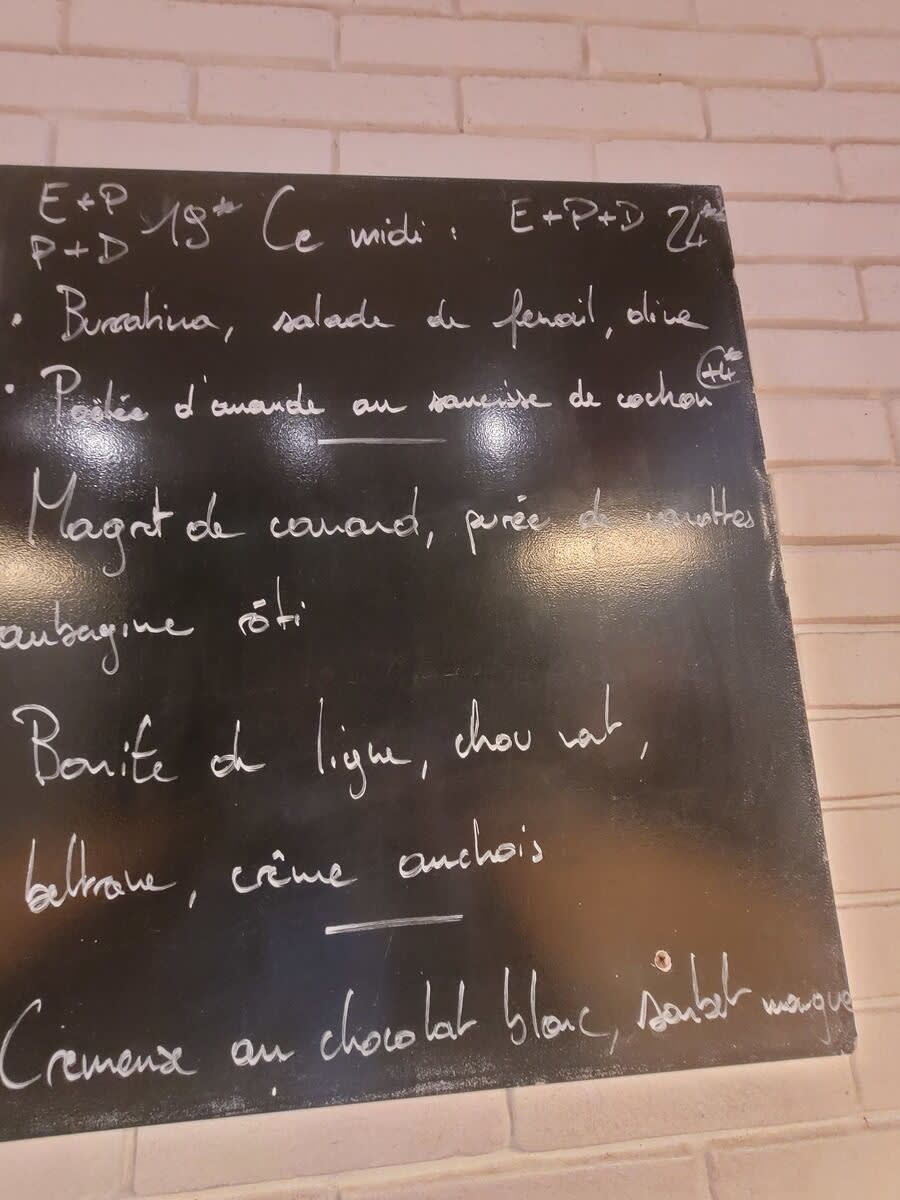 E+P
P+D 19€ Ce midi : E+P+D 24€
• Burratina, salade de fenouil, olive
• Poêlée d'amande au saucisse de cochon (+4€)
Magret de canard, purée de carottes
aubagine rôti
Bonite de ligne, chou rat,
beltrave, crême anchois
Crémeux au chocolat blanc, sorbet mangue